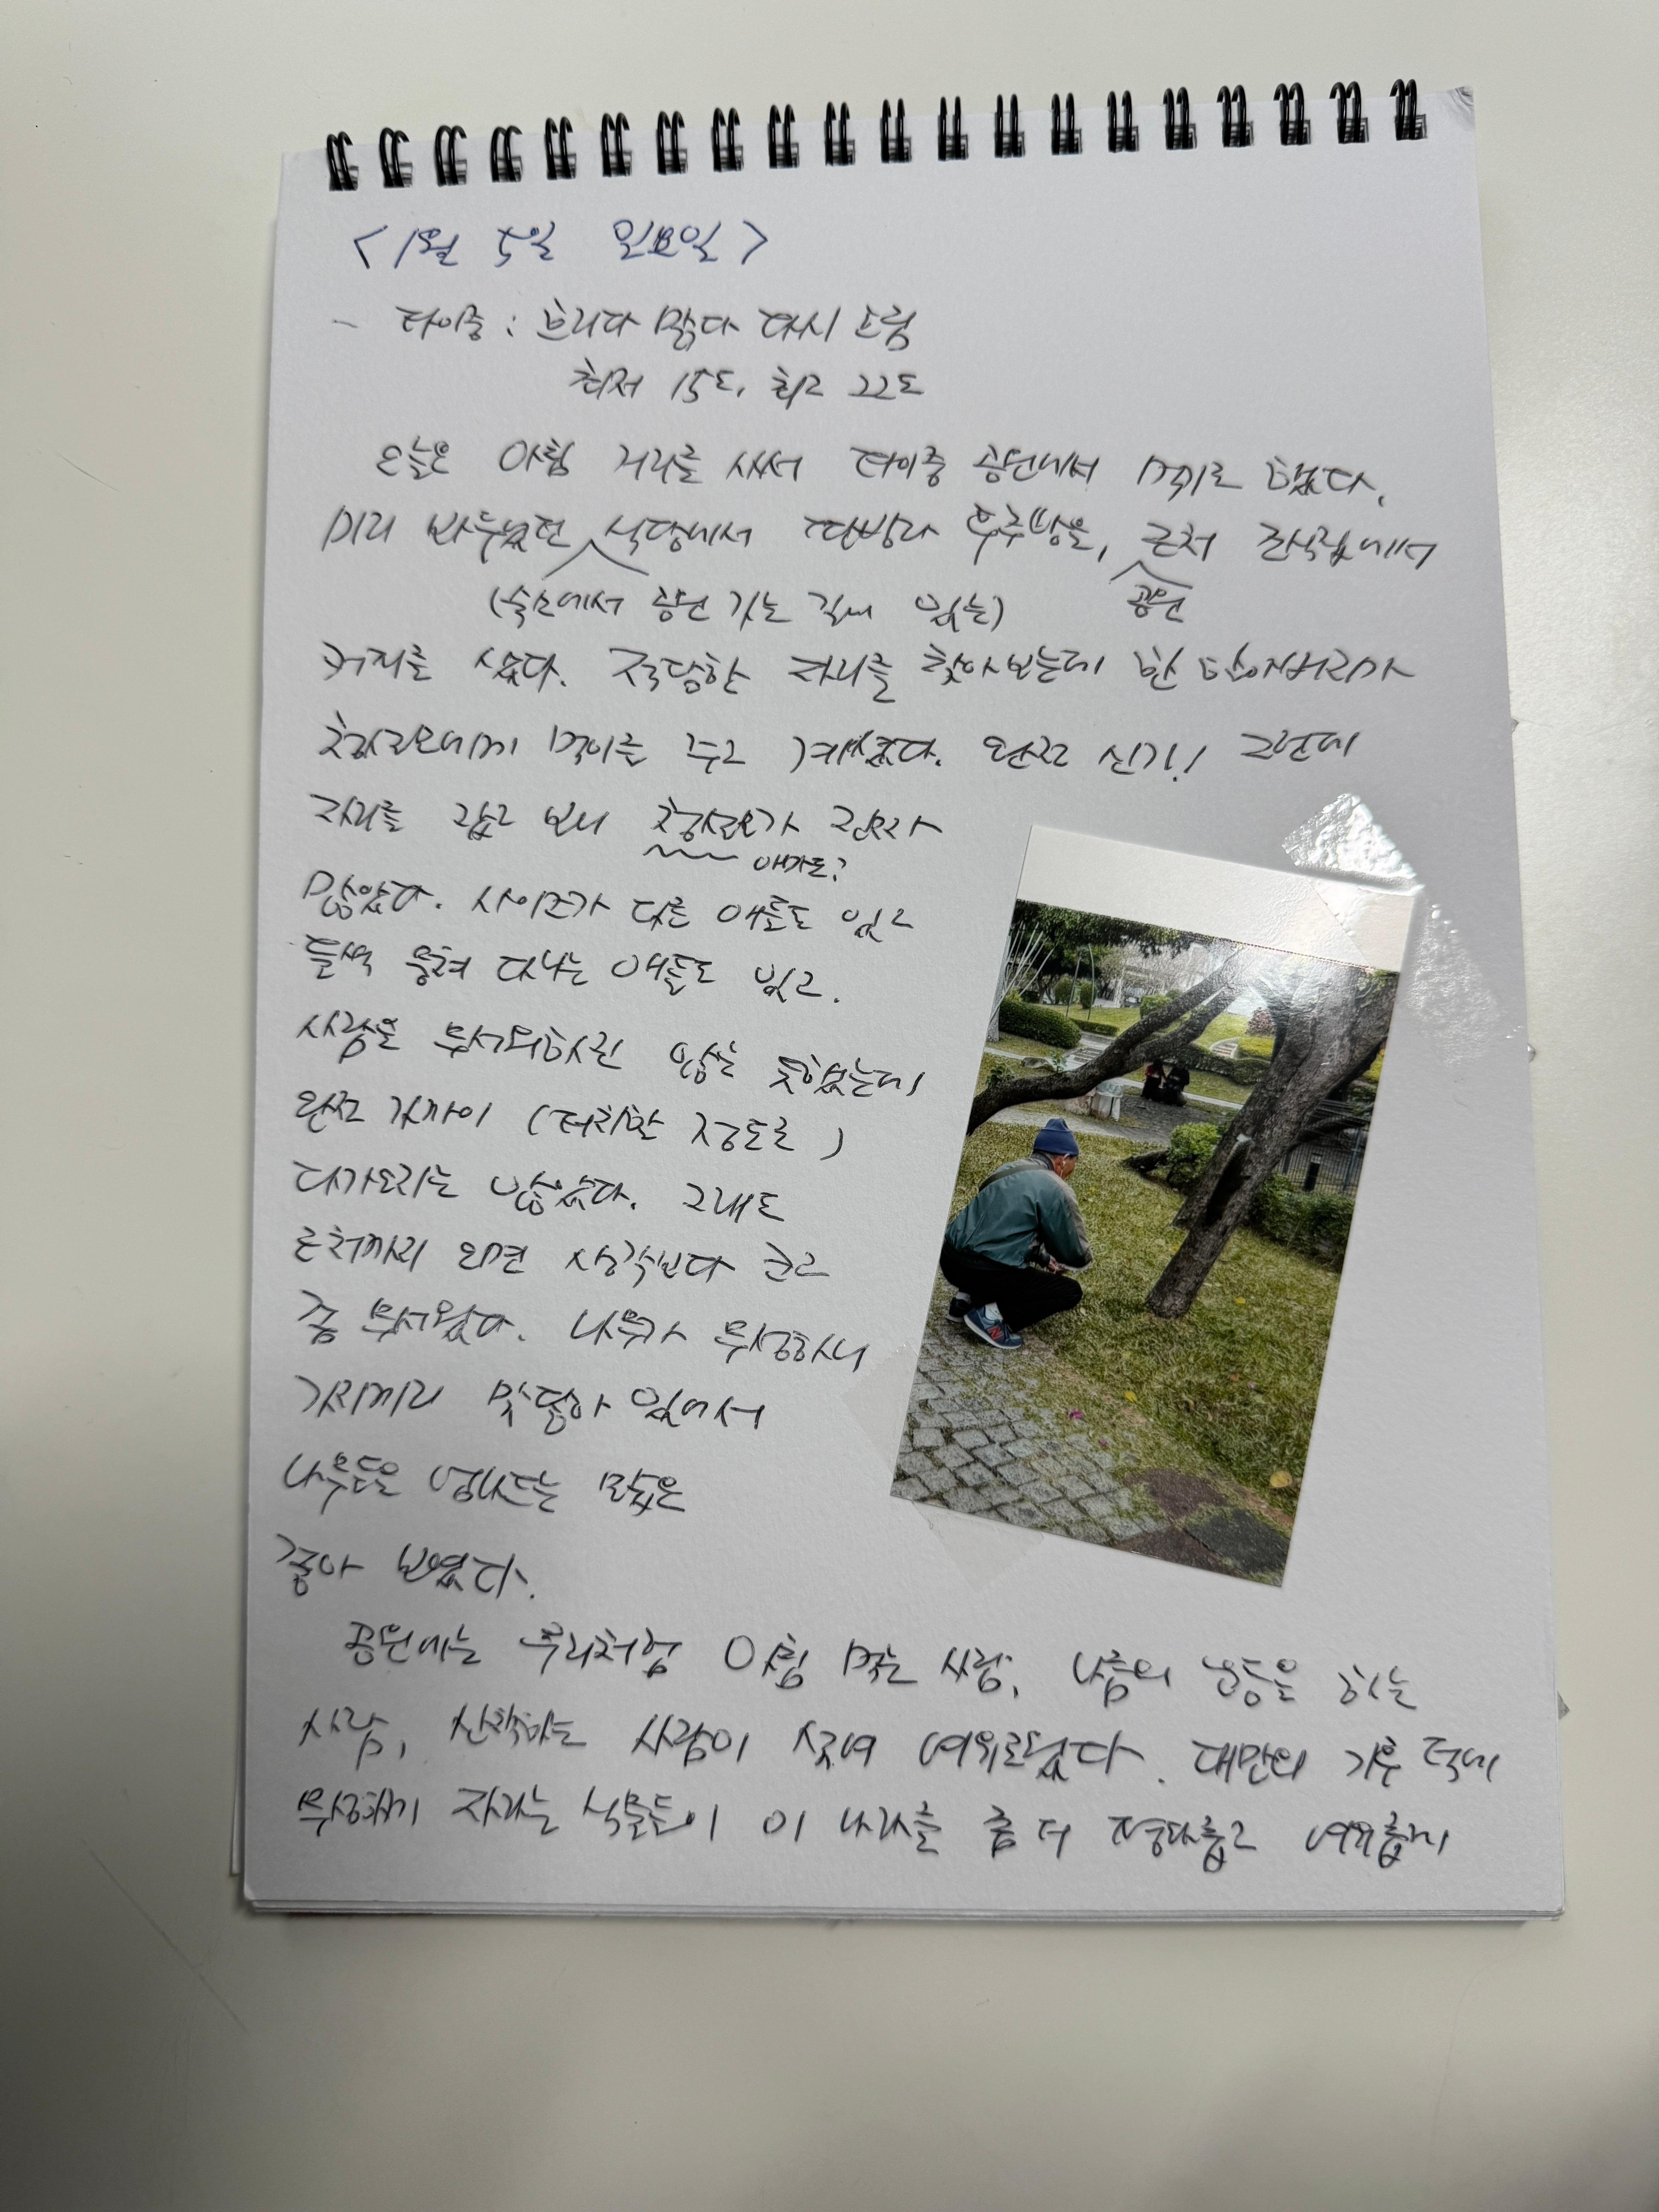 <1월 5일 일요일>
- 타이중 : 흐리다 맑다 다시 흐림
최저 15도, 최고 22도
오늘은 아침 거리를 사서 타이중 공원에서 먹기로 했다.
미리 봐두었던 식당에서 딴빙과 무주빙을, 근처 간식집에서
(숙소에서 공원 가는 길에 있는) 공원
커피를 샀다. 적당한 자리를 찾아보는데 한 할아버지가
청설모에게 먹이를 주고 계셨다. 완전 신기! 그런데
자리를 잡고 보니 청설모가 굉장히
얘가도?
많았다. 사이즈가 다른 애들도 있고
둘씩 뭉쳐 다니는 애들도 있고.
사람을 무서워하진 않는 듯했는데
완전 가까이 (터치할 정도로)
다가오지는 않았다. 그래도
근처까지 오면 생각보다 크고
좀 무서웠다. 나무가 무성하니
가지끼리 맞닿아 있어서
나무들을 넘나드는 모습은
좋아 보였다.
공원에는 우리처럼 아침 먹는 사람, 나름의 운동을 하는
사람, 산책하는 사람이 섞여 여유로웠다. 대만의 기후 덕에
무성하게 자라는 식물들이 이 나라를 좀 더 평화롭고 여유롭게